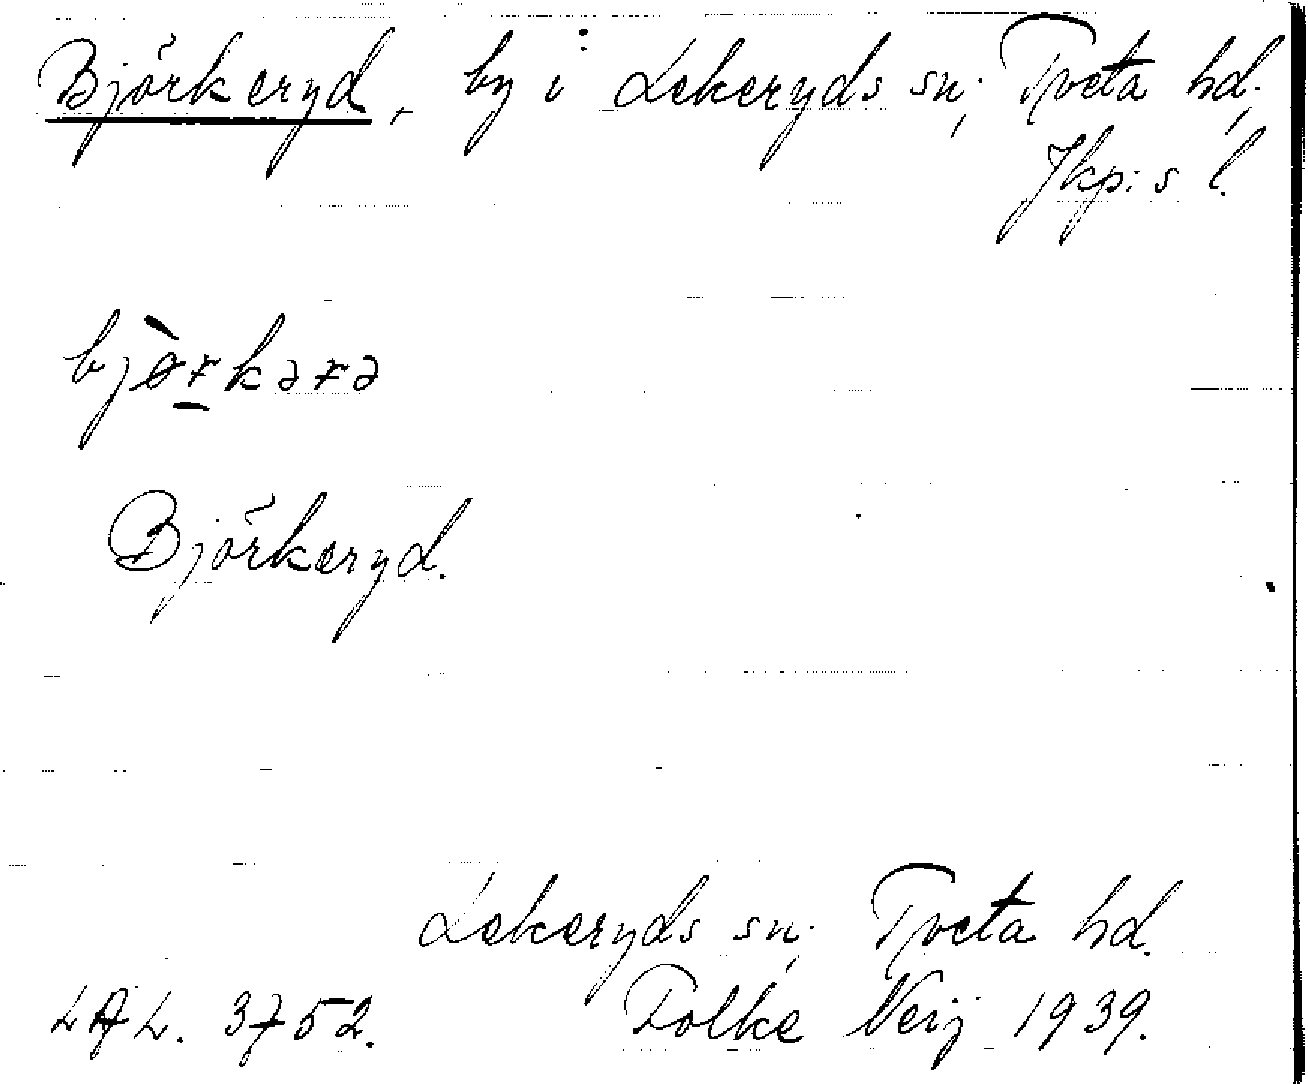 Björkeryd, by i Lekeryds sn; Tveta hd;
Jkp:s l.
bjørkərə
Björkeryd.
Lekeryds sn; Tveta hd.
LAL. 3752. Folke Neij 1939.